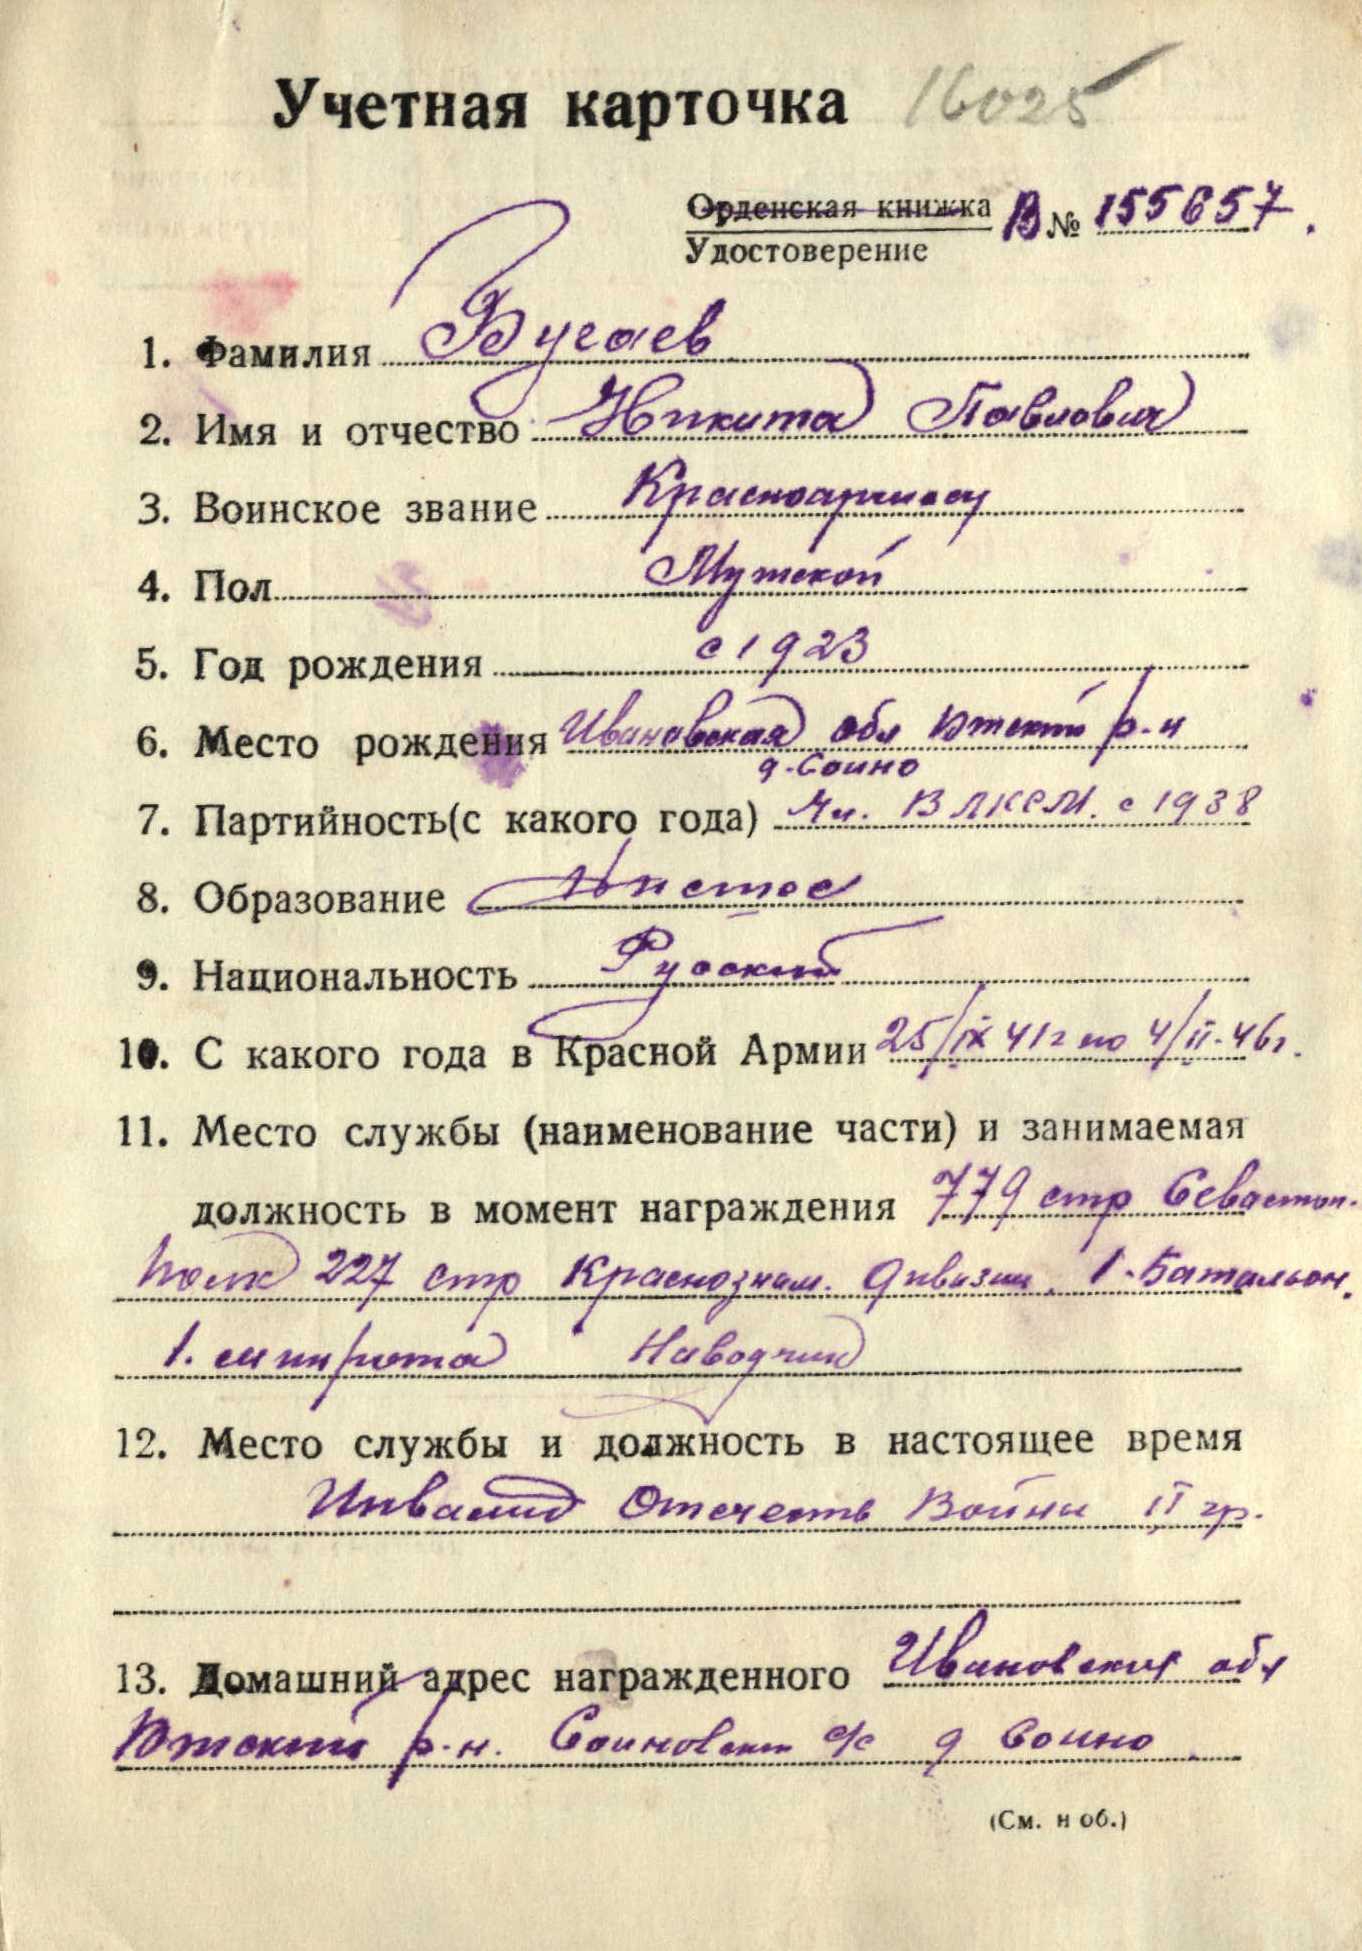 Учетная карточка 16025
Орденская книжка В № 155657.
Удостоверение
1. Фамилия Бугаев
2. Имя и отчество Никита Павлович
3. Воинское звание Красноармеец
4. Пол Мужской
5. Год рождения с 1923
6. Место рождения Ивановская обл Южский р-н
д. Соино
7. Партийность(с какого года) Чл. ВЛКСМ. с 1938
8. Образование
9. Национальность Русский
10. С какого года в Красной Армии 25/IX 41г по 4/II-46г.
11. Место службы (наименование части) и занимаемая
должность в момент награждения 779 стр Севастоп.
Полк 227 стр Краснознам. дивизии. 1-Батальон.
1. рота Наводчик
12. Место службы и должность в настоящее время
Инвалид Отечеств Войны II гр.
13. Домашний адрес награжденного Ивановская обл
Южский р-н. Соиновский с/с д Соино
(См. н об.)